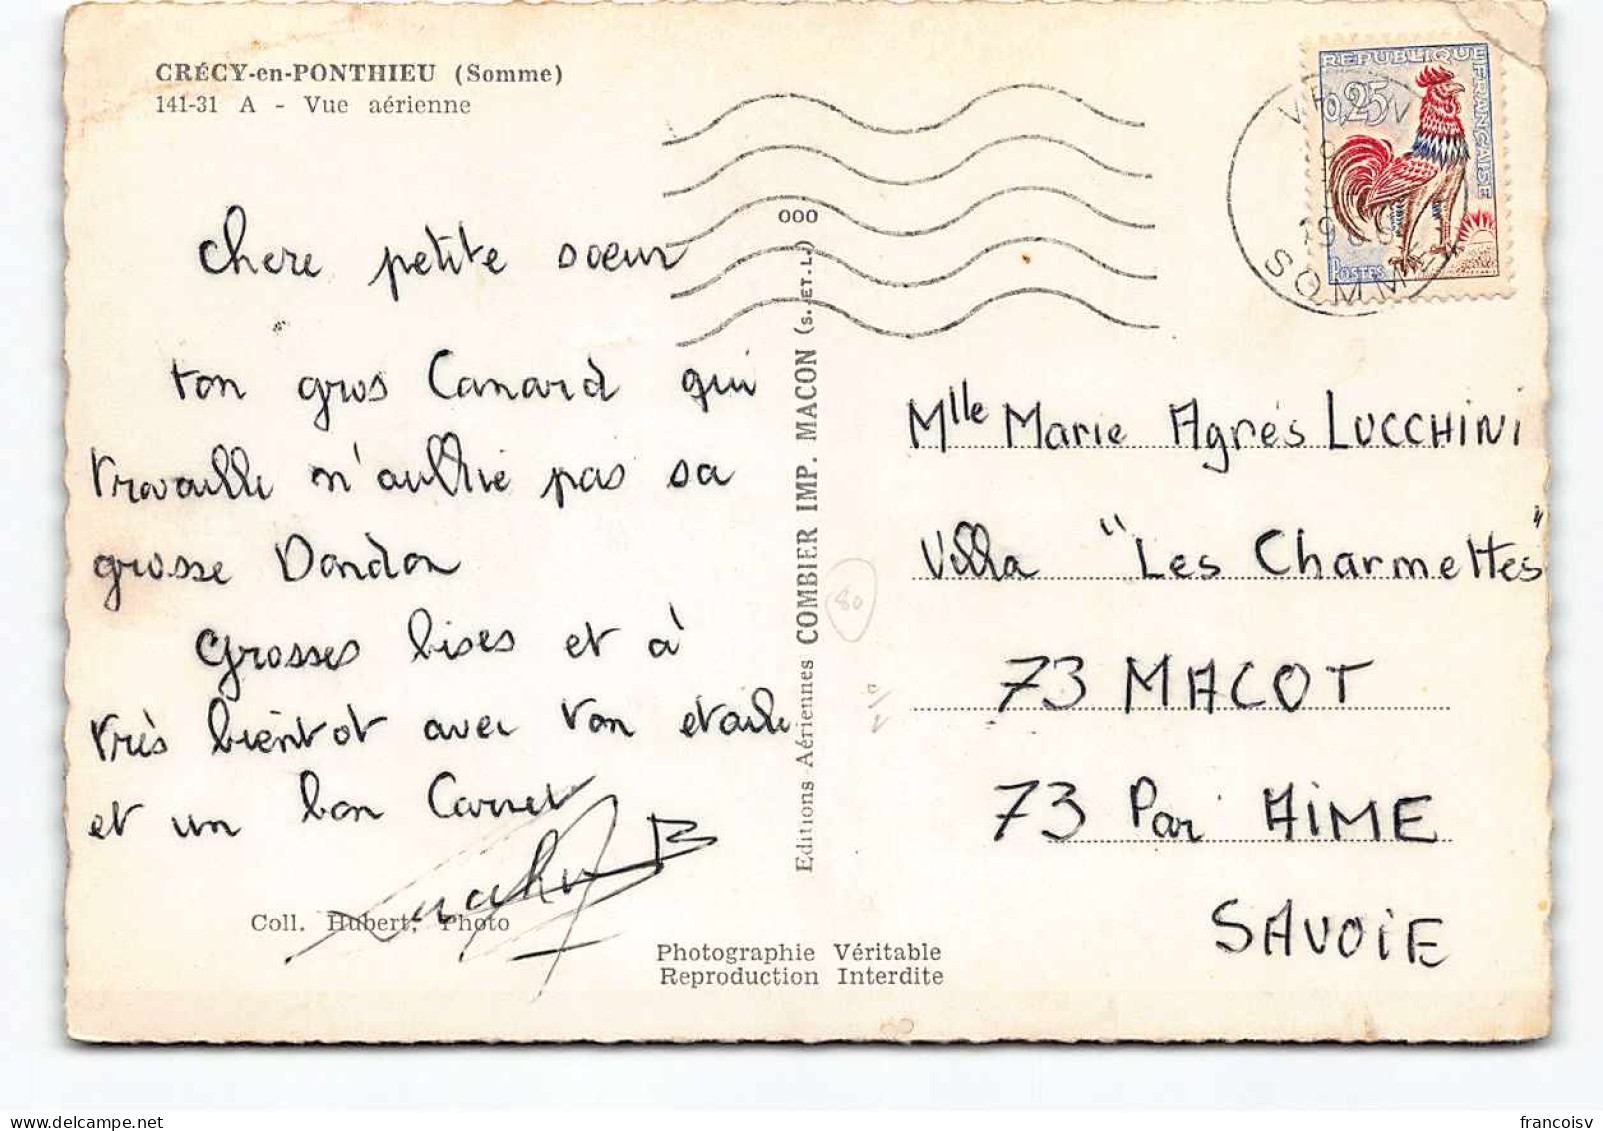 CRÉCY-en-PONTHIEU (Somme)
141-31 A - Vue aérienne
chere petite soeur
ton gros Canard qui
travaille n'oublie pas sa
grosse Dondon
Grosses bises et à
très bientot avec ton etoile
et un bon Carnet
Coll. Hubert, Photo
Photographie Véritable
Reproduction Interdite
Editions Aériennes COMBIER IMP. MACON (S. ET L.)
000
80
REPUBLIQUE FRANÇAISE
0,25
POSTES
SOMME
Mlle Marie Agnès LUCCHINI
Villa "Les Charmettes"
73 MACOT
73 Par AIME
SAVOIE
francoisv